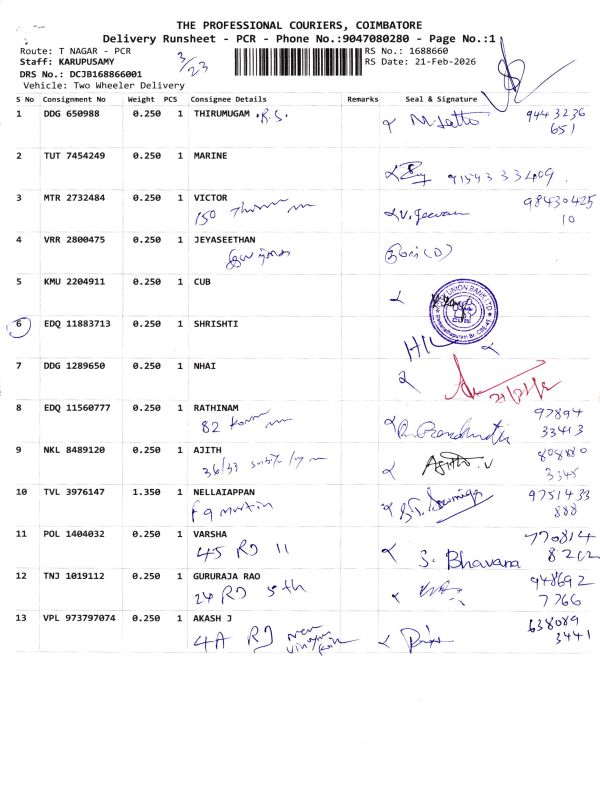 THE PROFESSIONAL COURIERS, COIMBATORE
Delivery Runsheet - PCR - Phone No.:9047080280 - Page No.:1
Route: T NAGAR - PCR
RS No.: 1688660
Staff: KARUPUSAMY
3/23
RS Date: 21-Feb-2026
DRS No.: DCJB168866001
Vehicle: Two Wheeler Delivery
S No Consignment No Weight PCS Consignee Details Remarks Seal & Signature
1 DDG 650988 0.250 1 THIRUMUGAM R.S. 9443236
651
2 TUT 7454249 0.250 1 MARINE
9154333409
3 MTR 2732484 0.250 1 VICTOR 98430425
150 V. Jeevan 10
4 VRR 2800475 0.250 1 JEYASEETHAN
(D)
5 KMU 2204911 0.250 1 CUB
UNION BANK LTD
6 EDQ 11883713 0.250 1 SHRISHTI
7 DDG 1289650 0.250 1 NHAI
8 EDQ 11560777 0.250 1 RATHINAM 97894
82 33413
9 NKL 8489120 0.250 1 AJITH
36/33 Ajith. V 3345
10 TVL 3976147 1.350 1 NELLAIAPPAN 9751433
F9 888
11 POL 1404032 0.250 1 VARSHA 770814
45 RJ 11 S. Bhavana 8212
12 TNJ 1019112 0.250 1 GURURAJA RAO 948692
24 RJ 5th 7766
13 VPL 973797074 0.250 1 AKASH J 638089
4A RJ new 3441